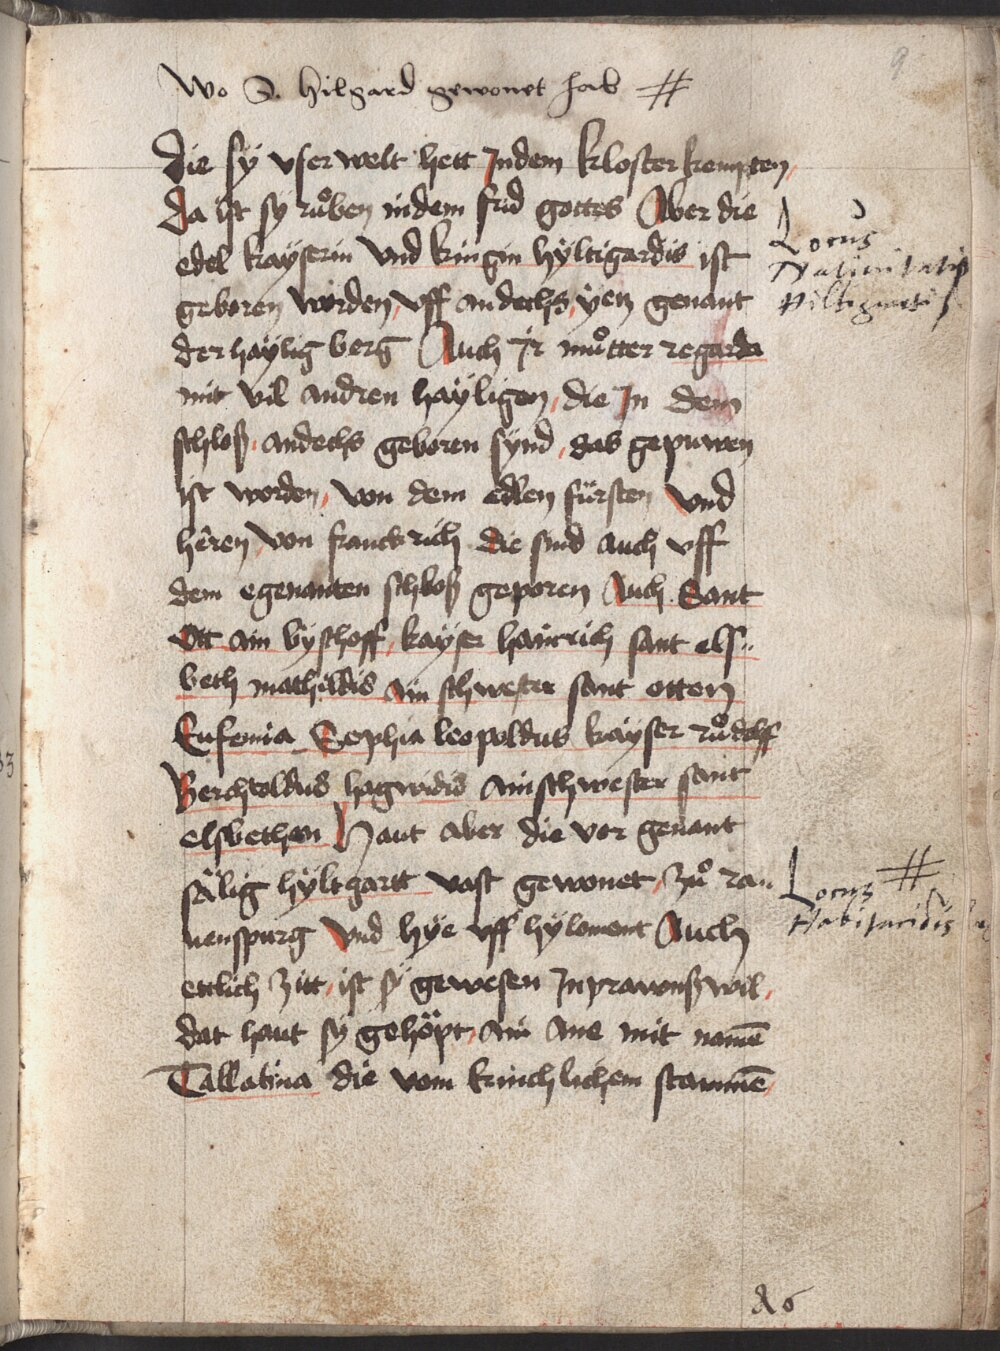 9
Wo S. Hilgard gewonet hab #
Die sÿ vserwelt hett Jn dem kloster kempten
Da ist sÿ růben in dem frid gottes Aber die
edel kayserin Vnd kungin hÿltigardis ist
geboren worden vff andechs, yetz genant
der haÿlig berg Auch Jr můtter regarda
mit vil andren haÿligen, die Jn dem
schloß andechs geboren sÿnd, das gepuwen
ist worden, von dem edlen fürsten Vnd
heren von franckrich die sind auch vff
dem egenanten schloß geporen Auch Sant
Ott ain bÿschoff, kaÿser hainrich sant els..
beth mathildis ain schwester sant otten
Eufemia Sophia leopoldus kayser růdolff
Berchtoldus hagwidis ain schwester sant
elsbethen Haut aber die vor genant
sälig hÿltgartt vast gewonet, zů ra..
uenspurg Vnd hÿe vff hÿloment Auch
ettlich zitt, ist sÿ gewesen
dat haut sÿ gehöpt, ain ane mit namē
Tallatina die vom kunchlichem stammē
Locus
Natiuitatis
Hiltigardis
Locus #
Habitacionis
A6